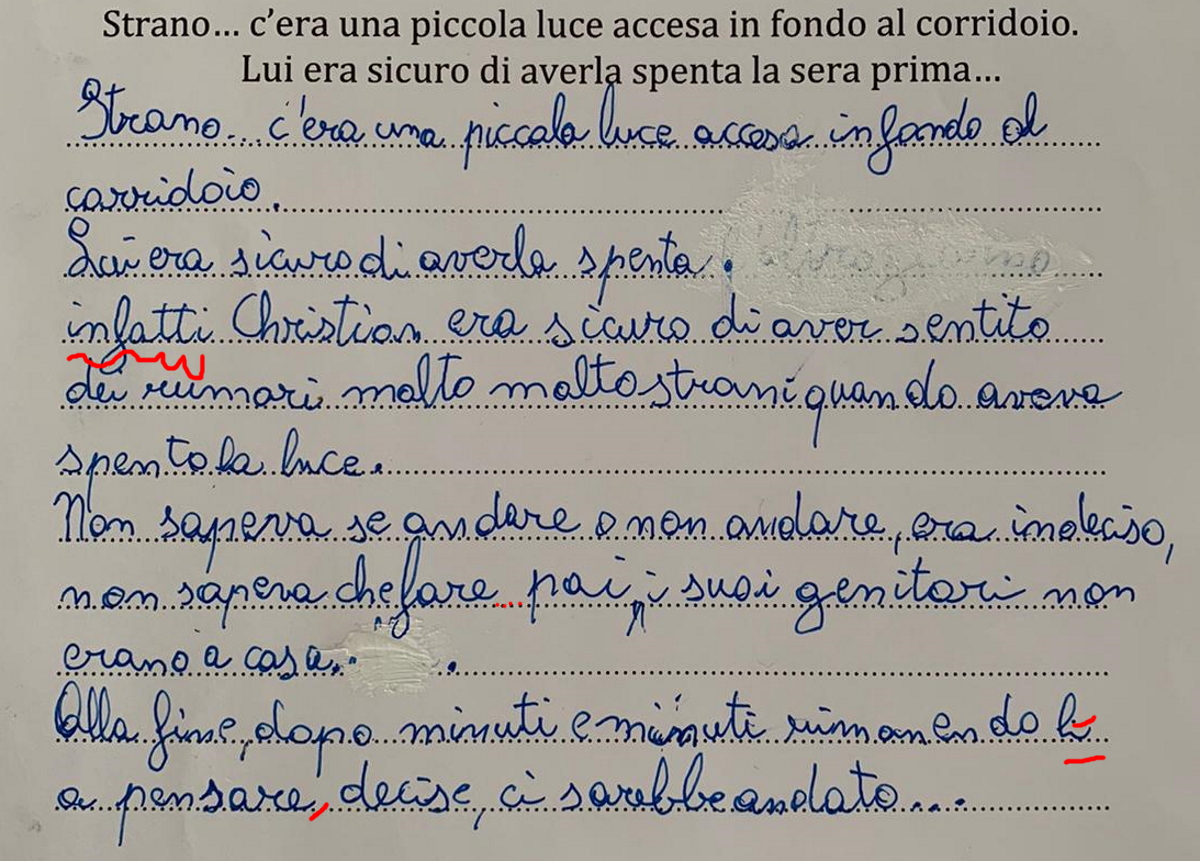 Strano... c'era una piccola luce accesa in fondo al corridoio.
Lui era sicuro di averla spenta la sera prima...
Strano... c'era una piccola luce accesa in fondo al
corridoio.
Lui era sicuro di averla spenta.
infatti Christian era sicuro di aver sentito
dei rumori molto molto strani quando aveva
spento la luce.
Non sapeva se andare o non andare, era indeciso,
non sapeva che fare... poi, i suoi genitori non
erano a casa.
Alla fine, dopo minuti e minuti rimanendo lì
a pensare, decise, ci sarebbe andato...